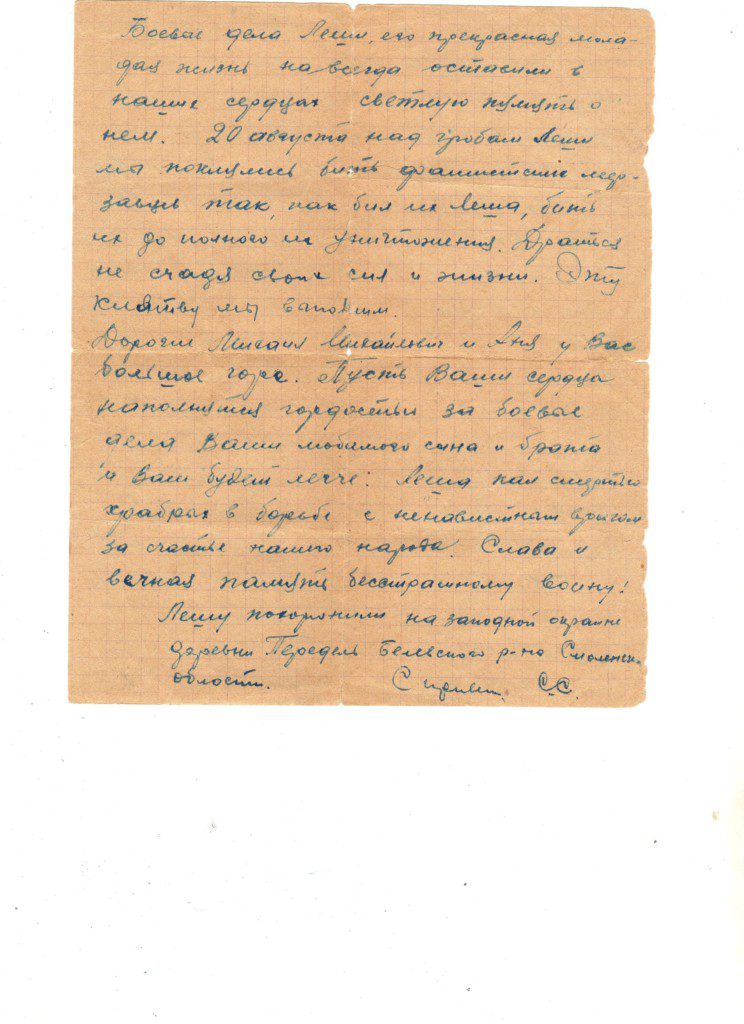 Боевые дела Леши, его прекрасная моло-
дая жизнь навсегда оставили в
наших сердцах светлую память о
нем. 20 августа над гробом Леши
мы поклялись бить фашистских мер-
завцев так, как бил их Леша, бить
их до полного их уничтожения. Драться
не счадя своих сил и жизни. Эту
клятву мы выполним.
Дорогие Михаил Михайлович и Аня у Вас
большое горе. Пусть Ваши сердца
наполнятся гордостью за боевые
дела Ваши любимого сына и брата
и Вам будет легче: Леша пал смертью
храбрых в борьбе с ненавистным врагом
за счастье нашего народа. Слава и
вечная память бесстрашному воину!
Лешу похоронили на западной окраине
деревни Передель Бельского р-на Смоленск.
области. С С.С.